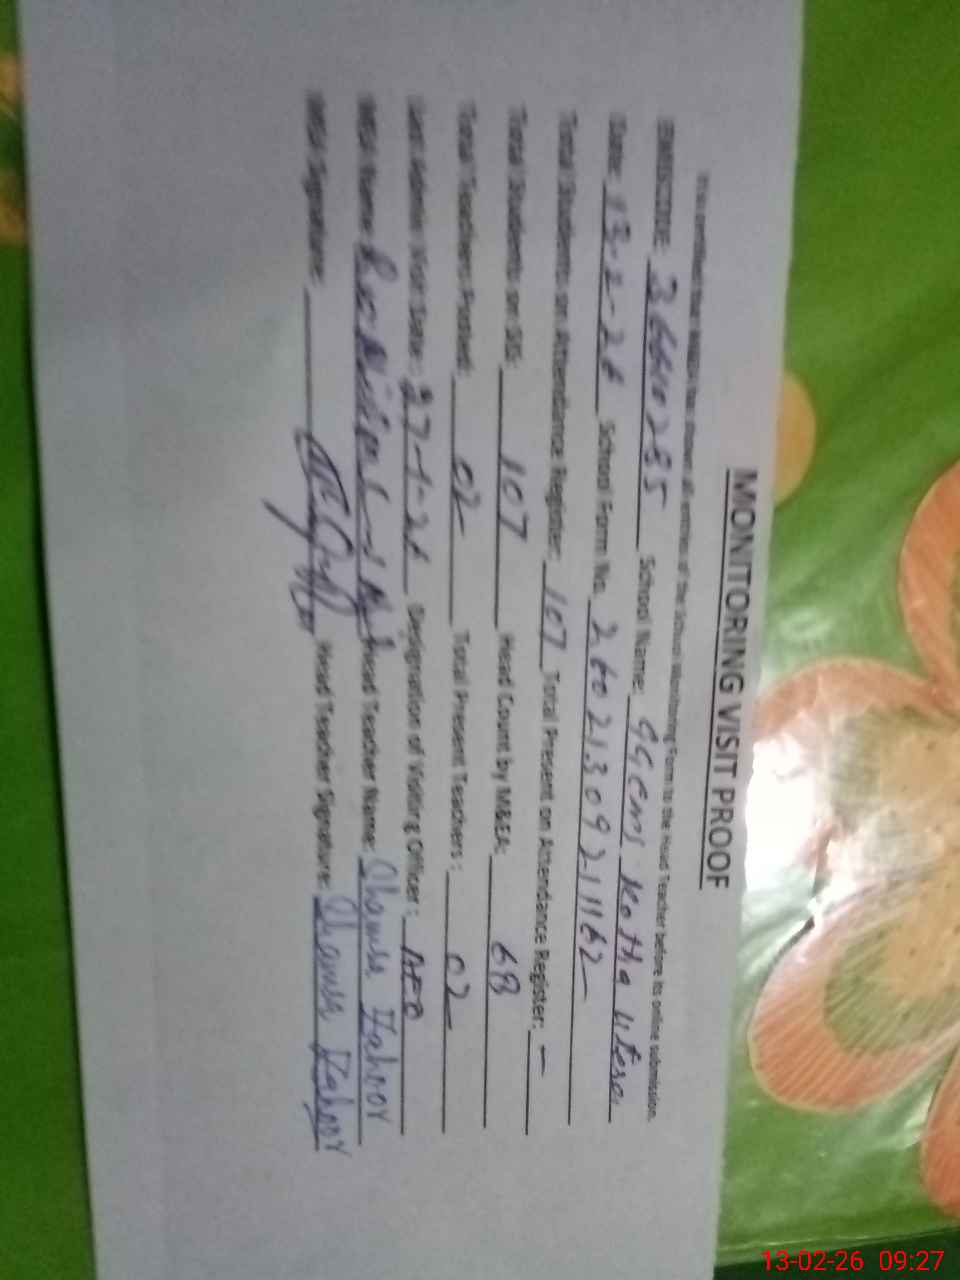 MONITORING VISIT PROOF
It is certified that MEA has shown all entries of the School Monitoring Form to the Head Teacher before its online submission.
EMISCODE: 36640285 School Name: GGCMS Kotha
Date: 13-2-26 School Form No. 260213092-11162
Total Students on Attendance Register: 107 Total Present on Attendance Register: -
Total Students on SIS: 107 Head Count by M&EA: 68
Total Teachers Posted: 02 Total Present Teachers: 02
Last Admin Visit Date: 27-1-26 Designation of Visiting Officer: AEO
MEA Name: Head Teacher Name: Shamsa Zahoor
MEA Signature: Head Teacher Signature: Shamsa Zahoor
13-02-26 09:27